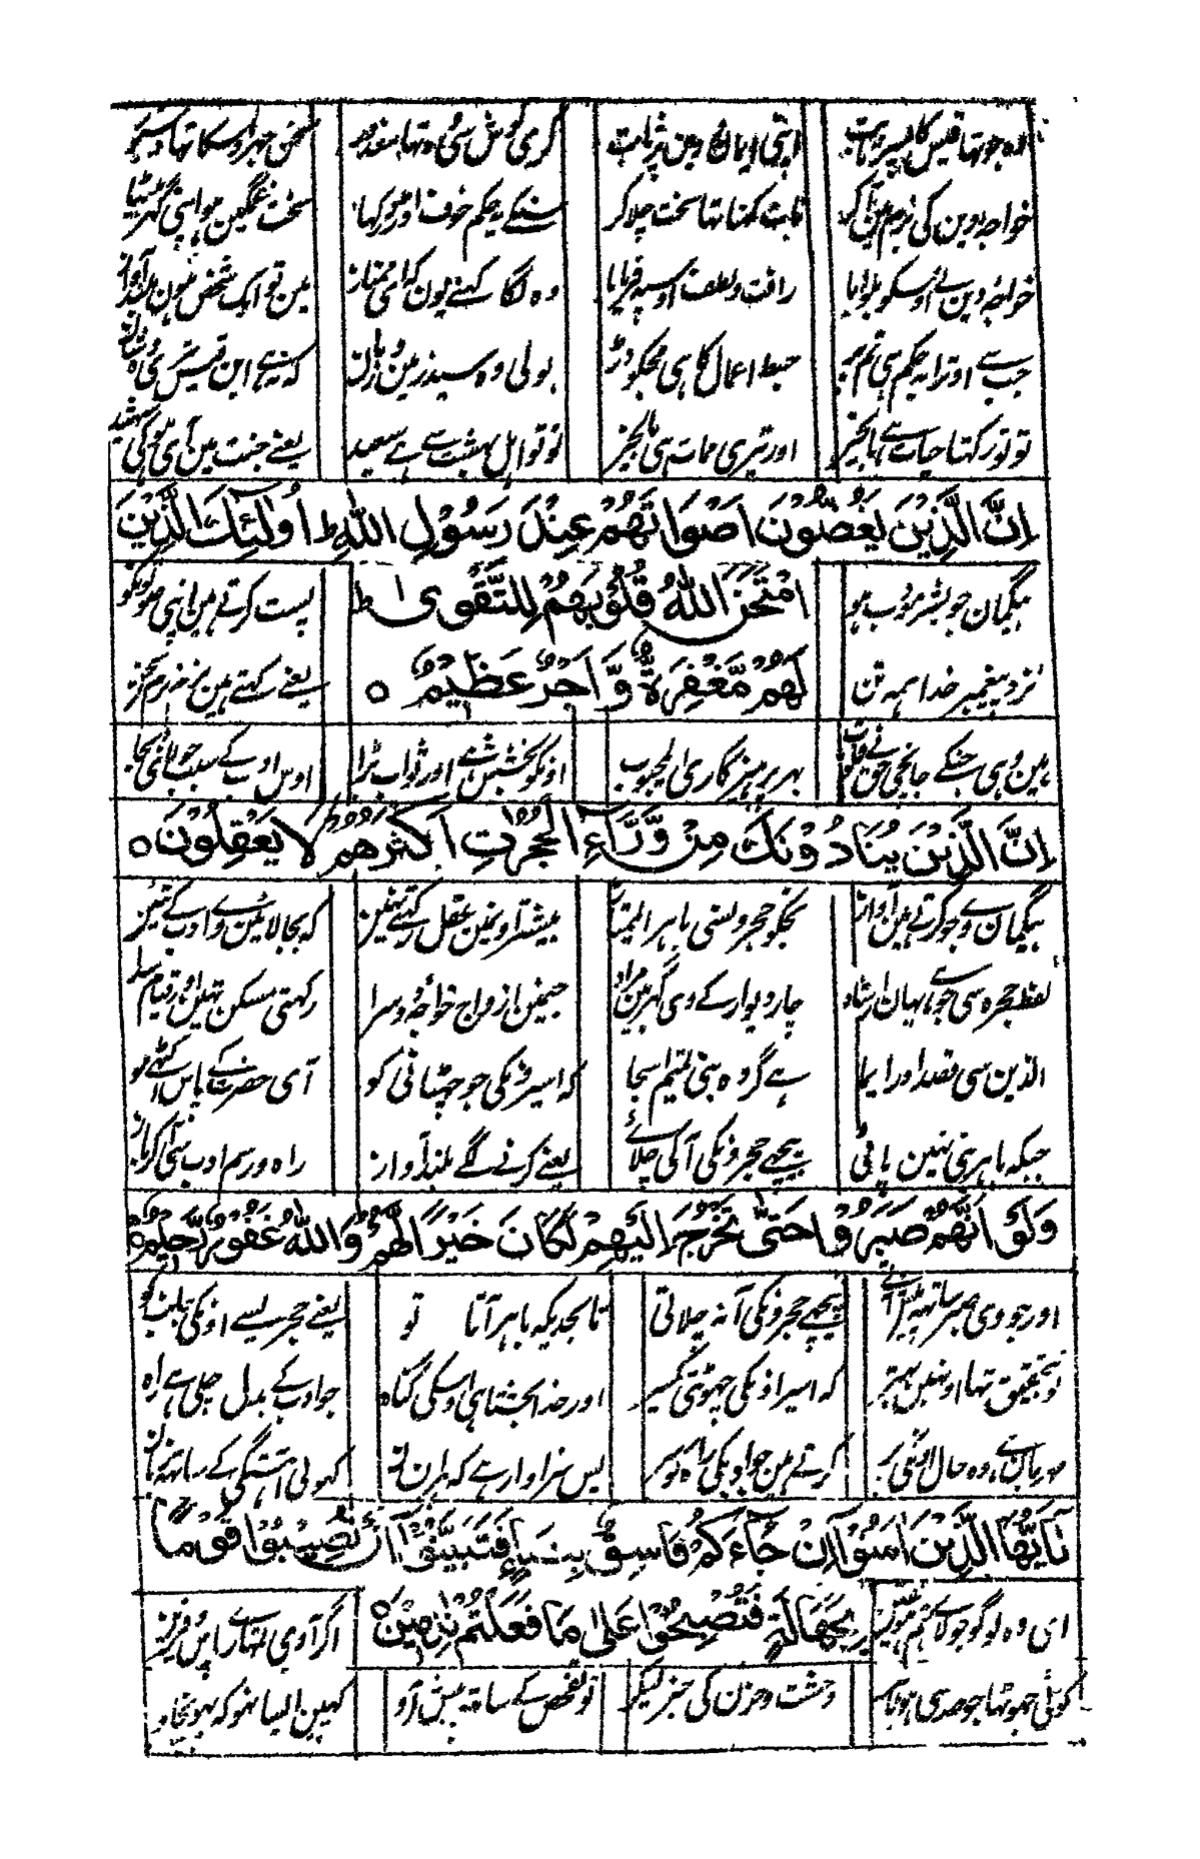 وہ جو تھا قیس کا پسر ثابت اپنی ایمان و دین پر ثابت کری گوش سی وہ تھا معذور سخن جہر اوسکا تھا دستور
خواجہ دین کی بزم مین آکر بات کہنا تھا سخت چلا کر سنکے یہ حکم خوف اور کہا سخت غمگین ہو اپنی گھر بیٹھا
خواجہ دین نے اوسکو بلوایا رافت و لطف اوسپہ فرمایا وہ لگا کہنے یون کہ ای ممتاز مین تو ایک شخص ہون بلند آواز
جب سے اوترا یہ حکم ہی تم پر حبط اعمال کا ہی مجکو ڈر بولی وہ سید زمین و زمان کہ نہیں ابن قیس
تو تو رکھتا حیات ہے بالخیر اور تیری ممات ہی بالخیر تو تو اہل بہشت سے ہے سعید یعنے جنت مین
اِنَّ الَّذِيْنَ يَغُضُّوْنَ اَصْوَاتَهُمْ عِنْدَ رَسُوْلِ اللّٰهِ ط اُولٰٓئِكَ الَّذِيْنَ
بیگمان جو بشر مؤدب ہو امْتَحَنَ اللّٰهُ قُلُوْبَهُمْ لِلتَّقْوٰى ط پست کرتے ہین اپنی صوتونکو
نزد پیغمبر خدا ہمہ تن لَهُمْ مَّغْفِرَةٌ وَّاَجْرٌ عَظِيْمٌ ه یعنے کہتے ہین نرم نرم سخن
ہین وہی جنکے جانچی حق نے قلوب بہر پرہیزگاری ای محبوب اونکو بخشش ہے اور ثواب بڑا اوس ادب کے سبب جو لائی بجا
اِنَّ الَّذِيْنَ يُنَادُوْنَكَ مِنْ وَّرَآءِ الْحُجُرٰتِ اَكْثَرُهُمْ لَا يَعْقِلُوْنَ ه
بیگمان وے جو کرتے ہین آواز تجکو حجرونسی باہر ای ممتاز بیشتر اونمین عقل رکھتے نہین کہ بجا لائین وے ادب کے تئین
لفظ حجرہ سی جو یہان ارشاد چار دیوار کے وی گھر ہین مراد جنمین ازواج خواجہ دوسرا رکھتی مسکن تہین اور قیام سدا
الذین سی قصد اور ایما ہے گروہ بنی تمیم اسجا کہ اسیرونکی جو چھٹانی کو آئی حضرت کے پاس اکٹھے ہو
جبکہ باہر نبی نہین پائی پیچھے حجرونکی آ کی چلائے یعنے کرنے لگے بلند آواز راہ و رسم ادب سی آکر باز
وَلَوْ اَنَّهُمْ صَبَرُوْا حَتّٰى تَخْرُجَ اِلَيْهِمْ لَكَانَ خَيْرًا لَّهُمْ وَاللّٰهُ غَفُوْرٌ رَّحِيْمٌ ه
اور جو وی صبر ساتھ پیش آتے پیچھے حجرونکی آ نہ چلاتی تا بحدیکہ باہر آتا تو یعنے حجر یسے اونکی جانب کو
تو بتحقیق تھا اونہین بہتر کہ اسیر اونکی چھوٹتی یکسر اور خدا بخشتا ہی اوسکی گناہ جو ادب کے بدل چلی ہے راہ
مہربان ہے وہ حال اونکی پر کرتے ہین جو ادبکی راہ پس سزاوار ہے کہ ہر ان تو کھولی آہستگی کے ساتھ زبان
يٰاَيُّهَا الَّذِيْنَ اٰمَنُوْٓا اِنْ جَآءَكُمْ فَاسِقٌ بِنَبَاٍ فَتَبَيَّنُوْٓا اَنْ تُصِيْبُوْا قَوْمًا
ای وہ لوگو جو لائے ہو تم یقین بِجَهَالَةٍ فَتُصْبِحُوْا عَلٰى مَا فَعَلْتُمْ نٰدِمِيْنَ ه اگر آوی تمہارے پاس
کوئی جھوٹھا جو حد سی ہو باہر وحشت و حزن کی خبر لیکر تو تفحص کے ساتھ پیش آؤ کہین ایسا نہو کہ پہونچاؤ